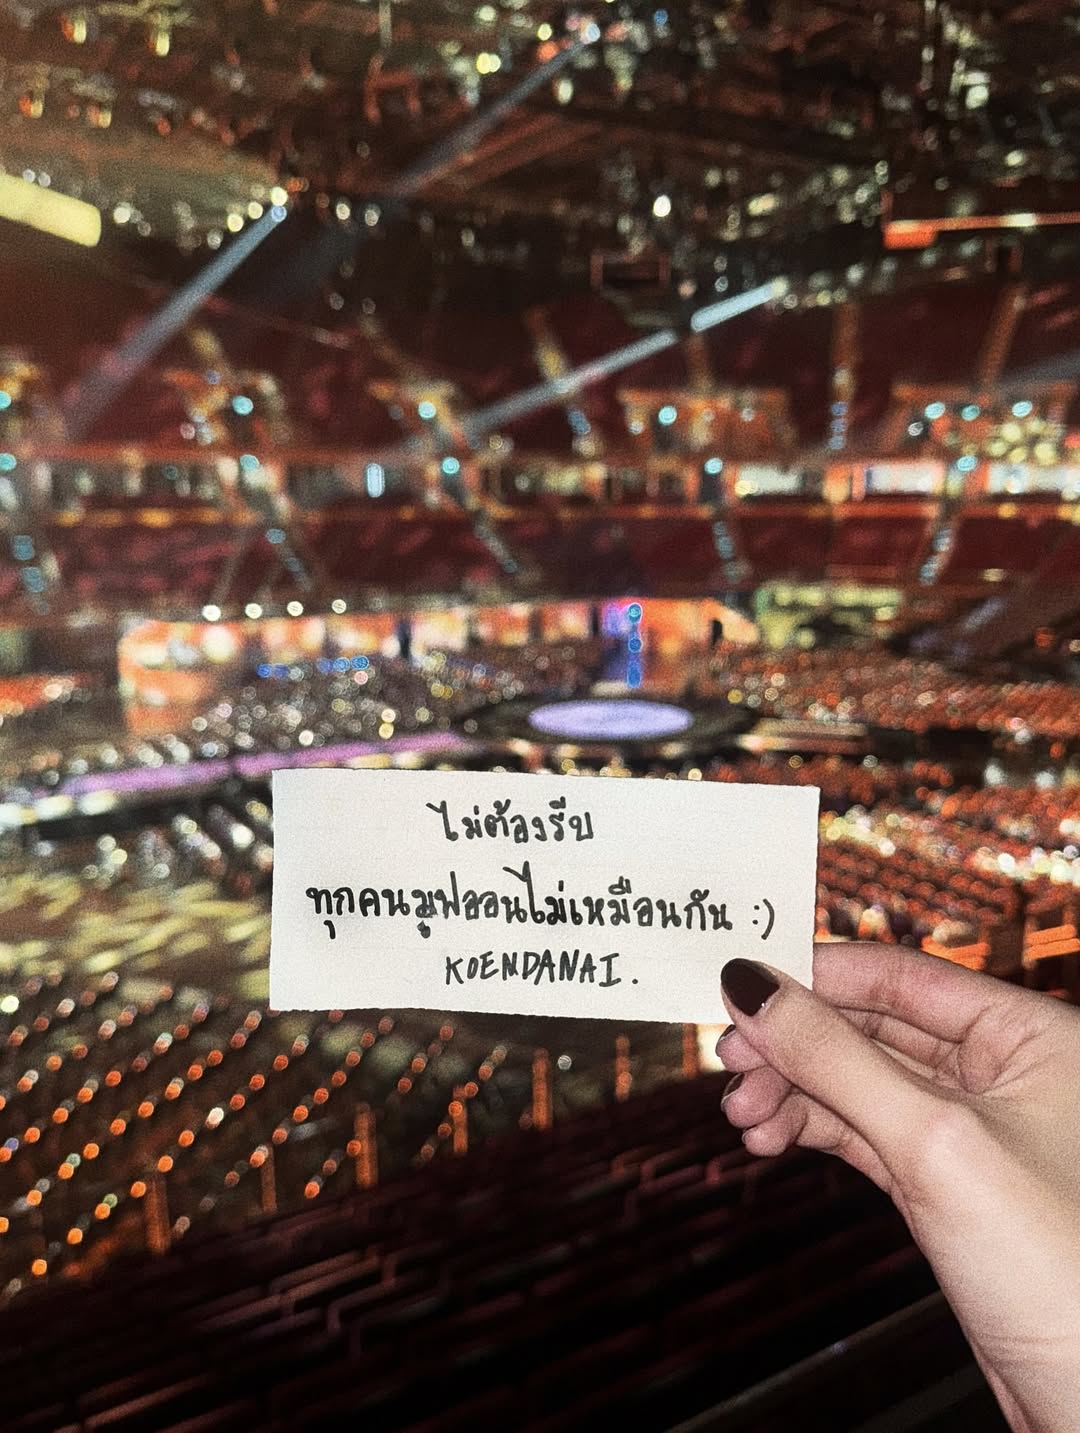 ไม่ต้องรีบ
ทุกคนมูฟออนไม่เหมือนกัน :)
KOENDANAI.